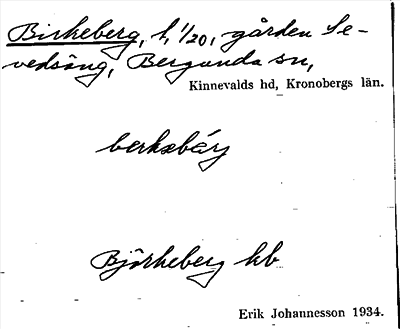 Birkeberg, l, 1/20, gården Se-
vedsäng, Bergunda sn,
Kinnevalds hd, Kronobergs län.
berkəbärj
Björkeberg kb
Erik Johannesson 1934.